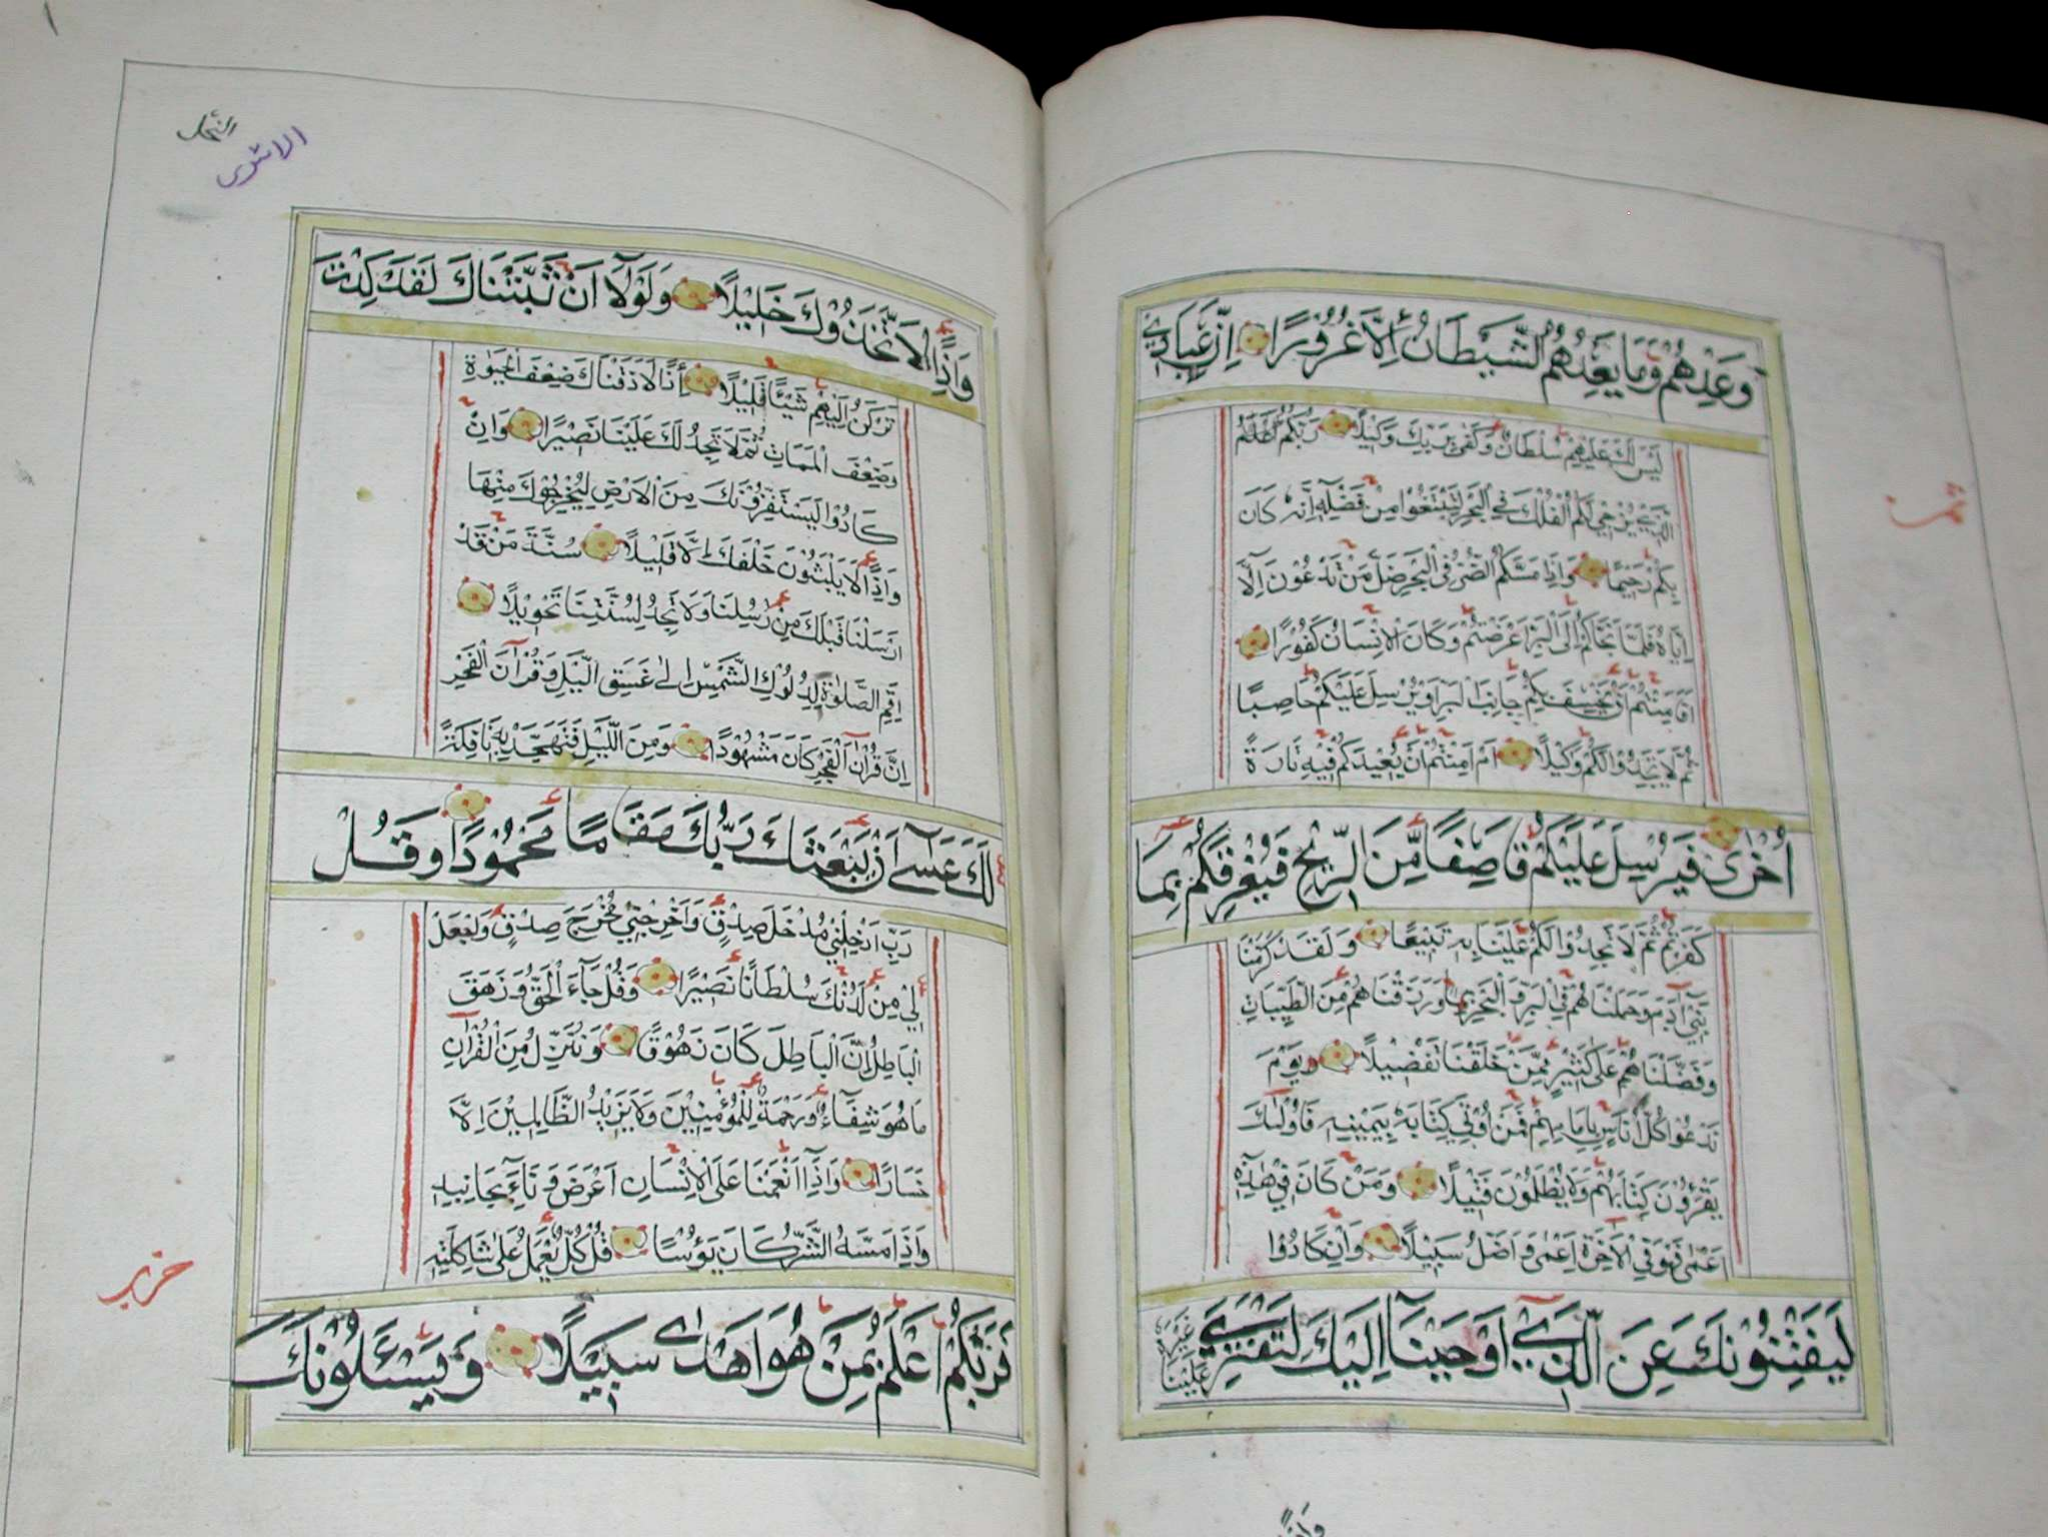 وَعِدْهُمْ وَمَا يَعِدُهُمُ الشَّيْطَانُ إِلَّا غُرُورًا إِنَّ عِبَادِي
لَيْسَ لَكَ عَلَيْهِمْ سُلْطَانٌ وَكَفَىٰ بِرَبِّكَ وَكِيلًا رَبُّكُمُ
الَّذِي يُزْجِي لَكُمُ الْفُلْكَ فِي الْبَحْرِ لِتَبْتَغُوا مِنْ فَضْلِهِ إِنَّهُ كَانَ
بِكُمْ رَحِيمًا وَإِذَا مَسَّكُمُ الضُّرُّ فِي الْبَحْرِ ضَلَّ مَنْ تَدْعُونَ إِلَّا
إِيَّاهُ فَلَمَّا نَجَّاكُمْ إِلَى الْبَرِّ أَعْرَضْتُمْ وَكَانَ الْإِنْسَانُ كَفُورًا
أَفَأَمِنْتُمْ أَنْ يَخْسِفَ بِكُمْ جَانِبَ الْبَرِّ أَوْ يُرْسِلَ عَلَيْكُمْ حَاصِبًا
ثُمَّ لَا تَجِدُوا لَكُمْ وَكِيلًا أَمْ أَمِنْتُمْ أَنْ يُعِيدَكُمْ فِيهِ تَارَةً
أُخْرَىٰ فَيُرْسِلَ عَلَيْكُمْ قَاصِفًا مِّنَ الرِّيحِ فَيُغْرِقَكُمْ بِمَا
كَفَرْتُمْ ثُمَّ لَا تَجِدُوا لَكُمْ عَلَيْنَا بِهِ تَبِيعًا وَلَقَدْ كَرَّمْنَا
بَنِي آدَمَ وَحَمَلْنَاهُمْ فِي الْبَرِّ وَالْبَحْرِ وَرَزَقْنَاهُمْ مِنَ الطَّيِّبَاتِ
وَفَضَّلْنَاهُمْ عَلَىٰ كَثِيرٍ مِمَّنْ خَلَقْنَا تَفْضِيلًا وَيَوْمَ
نَدْعُوا كُلَّ أُنَاسٍ بِإِمَامِهِمْ فَمَنْ أُوتِيَ كِتَابَهُ بِيَمِينِهِ فَأُولَٰئِكَ
يَقْرَؤُنَ كِتَابَهُمْ وَلَا يُظْلَمُونَ فَتِيلًا وَمَنْ كَانَ فِي هَٰذِهِ
أَعْمَىٰ فَهُوَ فِي الْآخِرَةِ أَعْمَىٰ وَأَضَلُّ سَبِيلًا وَإِنْ كَادُوا
لَيَفْتِنُونَكَ عَنِ الَّذِي أَوْحَيْنَا إِلَيْكَ لِتَفْتَرِيَ
عَلَيْنَا غَيْرَهُ
ثمن
النحل
الاسرى
وَإِذًا لَاتَّخَذُوكَ خَلِيلًا وَلَوْلَا أَنْ ثَبَّتْنَاكَ لَقَدْ كِدْتَ
تَرْكَنُ إِلَيْهِمْ شَيْئًا قَلِيلًا إِذًا لَأَذَقْنَاكَ ضِعْفَ الْحَيَوٰةِ
وَضِعْفَ الْمَمَاتِ ثُمَّ لَا تَجِدُ لَكَ عَلَيْنَا نَصِيرًا وَإِنْ
كَادُوا لَيَسْتَفِزُّونَكَ مِنَ الْأَرْضِ لِيُخْرِجُوكَ مِنْهَا
وَإِذًا لَا يَلْبَثُونَ خَلْفَكَ إِلَّا قَلِيلًا سُنَّةَ مَنْ قَدْ
أَرْسَلْنَا قَبْلَكَ مِنْ رُسُلِنَا وَلَا تَجِدُ لِسُنَّتِنَا تَحْوِيلًا
أَقِمِ الصَّلَوٰةَ لِدُلُوكِ الشَّمْسِ إِلَىٰ غَسَقِ الَّيْلِ وَقُرْآنَ الْفَجْرِ
إِنَّ قُرْآنَ الْفَجْرِ كَانَ مَشْهُودًا وَمِنَ اللَّيْلِ فَتَهَجَّدْ بِهِ نَافِلَةً
لَكَ عَسَىٰ أَنْ يَبْعَثَكَ رَبُّكَ مَقَامًا مَحْمُودًا وَقُلْ
رَبِّ أَدْخِلْنِي مُدْخَلَ صِدْقٍ وَأَخْرِجْنِي مُخْرَجَ صِدْقٍ وَاجْعَلْ
لِي مِنْ لَدُنْكَ سُلْطَانًا نَصِيرًا وَقُلْ جَاءَ الْحَقُّ وَزَهَقَ
الْبَاطِلُ إِنَّ الْبَاطِلَ كَانَ زَهُوقًا وَنُنَزِّلُ مِنَ الْقُرْآنِ
مَا هُوَ شِفَاءٌ وَرَحْمَةٌ لِلْمُؤْمِنِينَ وَلَا يَزِيدُ الظَّالِمِينَ إِلَّا
خَسَارًا وَإِذَا أَنْعَمْنَا عَلَى الْإِنْسَانِ أَعْرَضَ وَنَأَىٰ بِجَانِبِهِ
وَإِذَا مَسَّهُ الشَّرُّ كَانَ يَؤُسًا قُلْ كُلٌّ يَعْمَلُ عَلَىٰ شَاكِلَتِهِ
فَرَبُّكُمْ أَعْلَمُ بِمَنْ هُوَ أَهْدَىٰ سَبِيلًا وَيَسْئَلُونَكَ
حزب